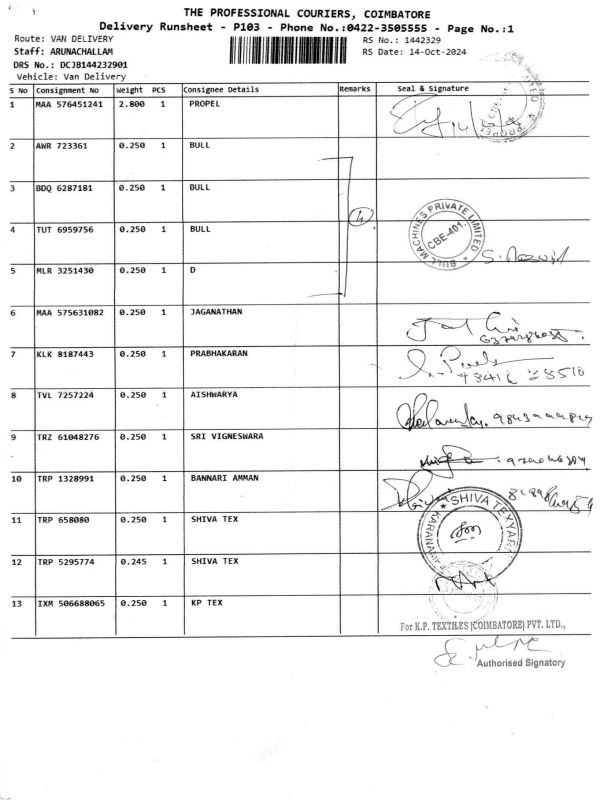 THE PROFESSIONAL COURIERS, COIMBATORE
Delivery Runsheet - P103 - Phone No.:0422-3505555 - Page No.:1
Route: VAN DELIVERY RS No.: 1442329
Staff: ARUNACHALLAM RS Date: 14-Oct-2024
DRS No.: DCJB144232901
Vehicle: Van Delivery
S No Consignment No Weight PCS Consignee Details Remarks Seal & Signature
1 MAA 576451241 2.800 1 PROPEL
2 AWR 723361 0.250 1 BULL
3 BDQ 6287181 0.250 1 BULL
4
4 TUT 6959756 0.250 1 BULL
BULL MACHINES PRIVATE LIMITED
CBE-401.
5 MLR 3251430 0.250 1 D
6 MAA 575631082 0.250 1 JAGANATHAN
7 KLK 8187443 0.250 1 PRABHAKARAN
8 TVL 7257224 0.250 1 AISHWARYA
9 TRZ 61048276 0.250 1 SRI VIGNESWARA
10 TRP 1328991 0.250 1 BANNARI AMMAN
SHIVA TEXYARN
11 TRP 658080 0.250 1 SHIVA TEX
12 TRP 5295774 0.245 1 SHIVA TEX
13 IXM 506688065 0.250 1 KP TEX
For K.P. TEXTILES (COIMBATORE) PVT. LTD.,
Authorised Signatory